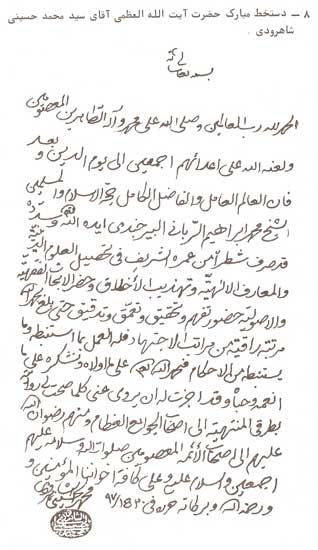 ۸ – دستخط مبارک حضرت آیت الله العظمی آقای سید محمد حسینی
شاهرودی .
بسمه تعالی
الحمد لله رب العالمین وصلی الله علی محمد وآله الطاهرین المعصومین
ولعنة الله علی اعدائهم اجمعین الی یوم الدین وبعد
فان العالم العامل والفاضل الکامل حجة الاسلام والمسلمین
الشیخ محمد ابراهیم الربانی البیرجندی ایده الله
قد صرف شطراً من عمره الشریف فی تحصیل العلوم الدینیة
والمعارف الالهیة وتهذیب الاخلاق وحضر الابحاث الفقهیة
والاصولیة حضور تفهم وتحقیق وتعمق وتدقیق حتی بلغ بحمد الله
مرتبة راقیة من مراتب الاجتهاد فله العمل بما استنبطه وما
یستنبطه من الاحکام فنحمد الله علی ما اولاه ونشکره علی ما
انعمه وحباه وقد اجزت له ان یروی عنی کلما صحت لی روایته
بطرقی المنتهیة الی اصحاب الجوامع العظام ومنهم رضوان الله
علیهم الی اصحاب الائمة المعصومین صلوات الله وسلامه علیهم
اجمعین والسلام علیه وعلی کافة اخواننا المؤمنین
ورحمة الله وبرکاته حرره فی